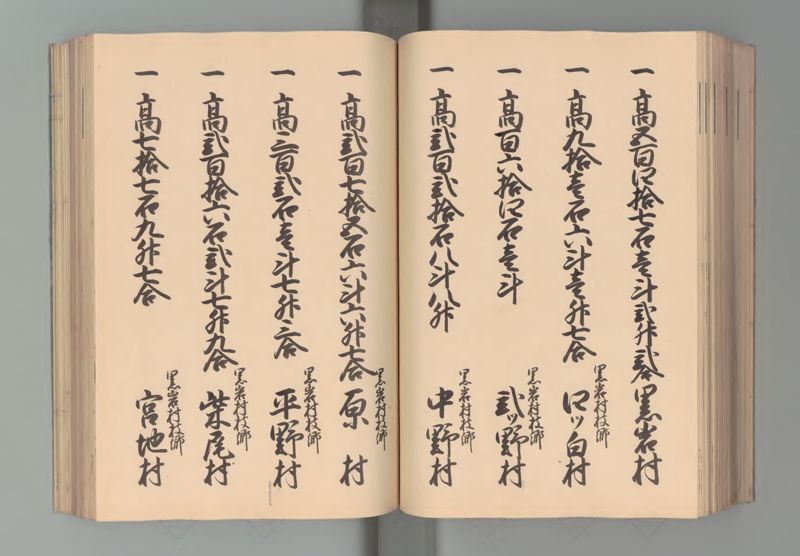 一 高五百四拾七石壱斗弐升弐合 黒岩村
一 高九拾壱石六斗壱升七合 黒岩村枝郷 四ッ白村
一 高百六拾四石壱斗 黒岩村枝郷 弐ッ野村
一 高弐百弐拾石八斗八升 黒岩村枝郷 中野村
一 高弐百七拾五石六斗六升七合 黒岩村枝郷 原村
一 高三百弐石壱斗七升三合 黒岩村枝郷 平野村
一 高弐百拾六石弐斗七升九合 黒岩村枝郷 柴尾村
一 高七拾七石九升七合 黒岩村枝郷 宮地村